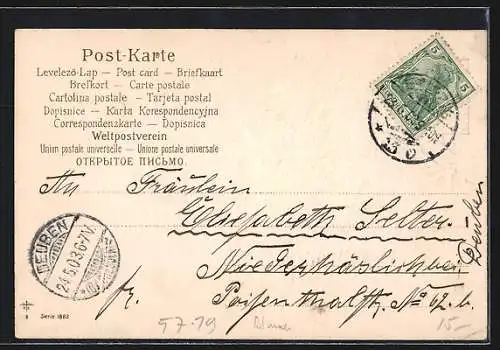 Post-Karte
Levelező-Lap — Post card — Briefkaart
Brefkort — Carte postale
Cartolina postale — Tarjeta postal
Dopisnice — Karta Korespondencyjna
Correspondenzkarte — Dopisnica
Weltpostverein
Union postale universelle — Unione postale universale
ОТКРЫТОЕ ПИСЬМО.
5
5
An Fräulein
Elisabeth Selter
Niederhäslich bei
Deuben
fr. Poisenthalstr. No 62. b.
DEUBEN
24.5.03.6-7V.
Serie 1883
57.19
15.—